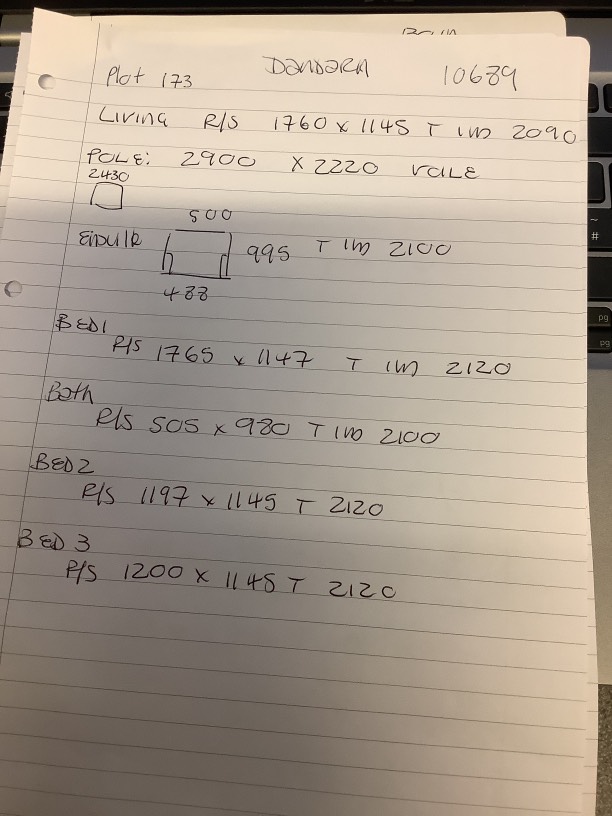 Plot 173 DANDARA 10689
Living R/S 1760 x 1145 T IM 2090
POLE: 2900 x 2220 rale
2430
500
995 T IM 2100
488
BED1
R/S 1765 x 1147 T IM 2120
Bath
R/S 505 x 980 T IM 2100
BED2
R/S 1197 x 1145 T 2120
BED 3
R/S 1200 x 1145 T 2120
~
#
pg
pg